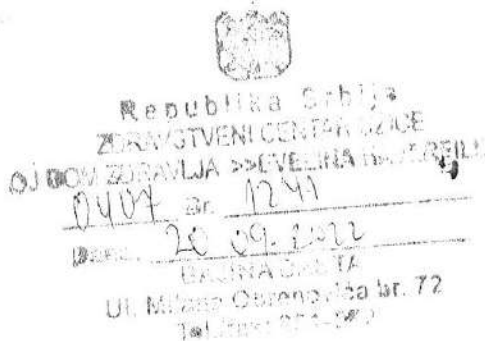 Republika Srbija
ZDRAVSTVENI CENTAR UŽICE
OJ DOM ZDRAVLJA >>EVELINA
0407 Br. 1241
20 09. 2022
BAJINA BAŠTA
Ul. Milana Obrenovića br. 72